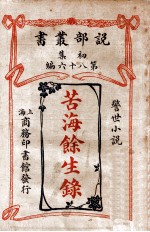 説部叢書
初集
第八十六編
警世小説
苦海餘生錄
上海
商務印書館發行